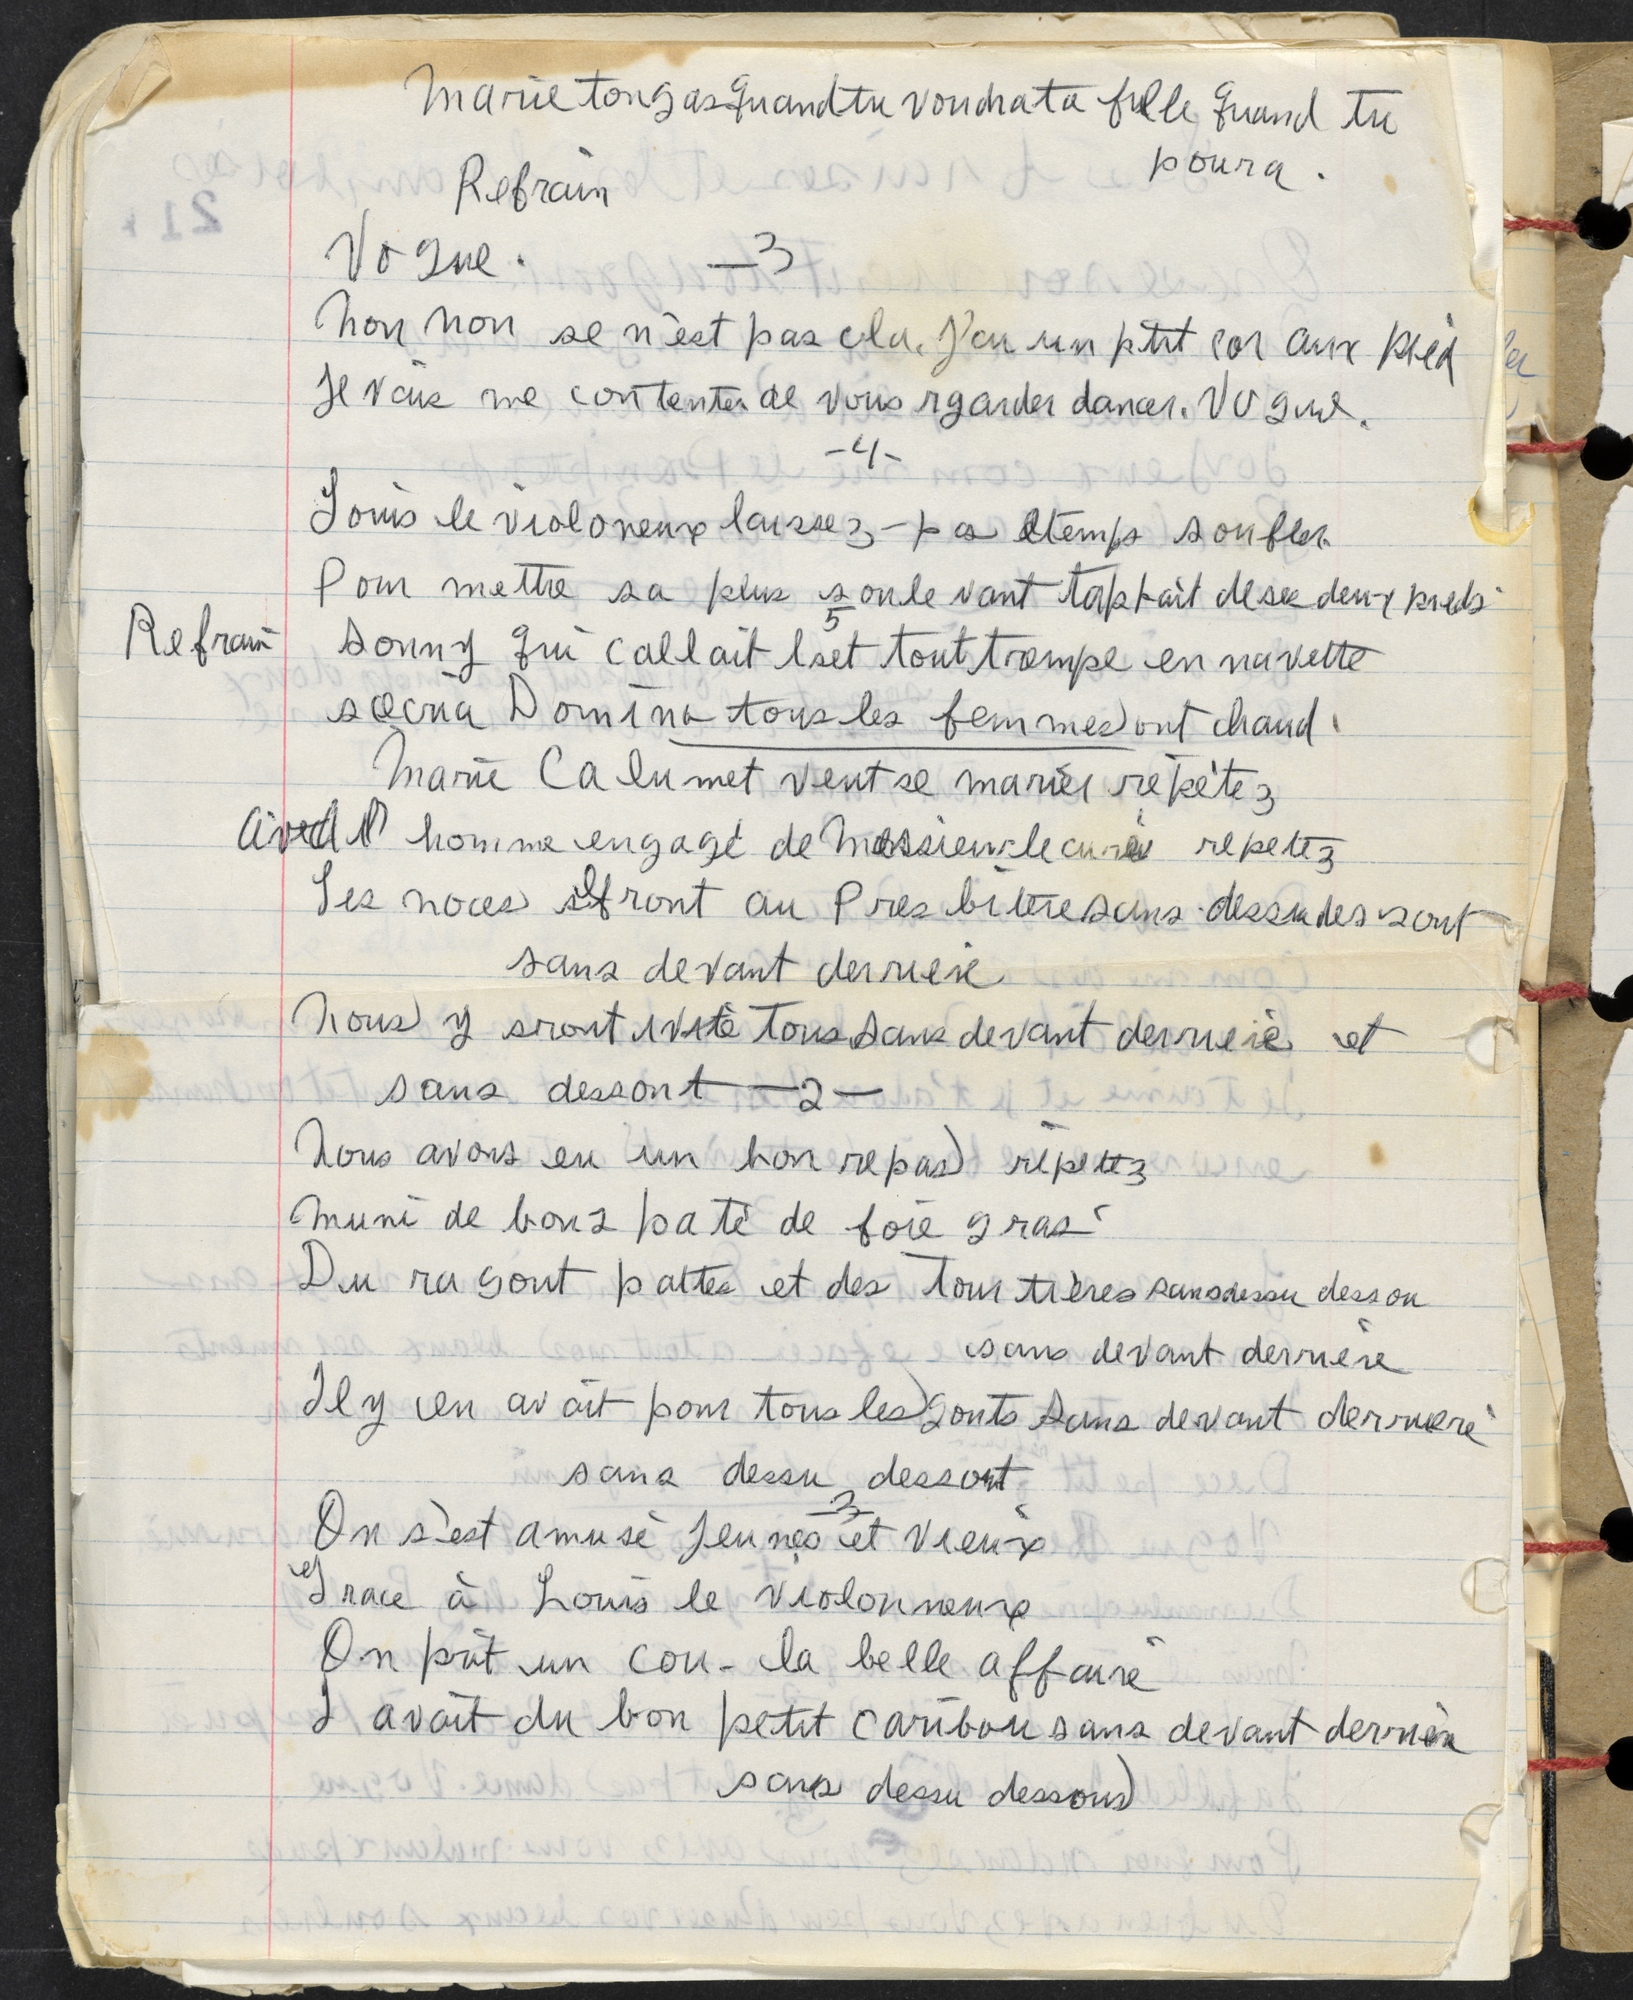 Marie ton gas quand tu voudra ta fille quand tu
poura.
Refrain
Vogue. —3
Non non se n'est pas cela. J'ai un ptit cor aux pied
Je vais me contenter de vous rgarder dancer. Vogue.
-4-
Louis le violoneux laissez-pas l temps soufler
Pour mettre sa plus soule vant tappait de ses deux pieds
5
Refrain Sonny qui callait l set tout trempe en navette
Domino tous les femmes ont chaud.
Marie Calumet veut se marier répètez
Avec l' homme engagé de Messieur le curé repetez
Les noces sfront au Presbitère sans dessu des sout
sans devant derriere
Nous y sront ivité tous sans devant derrieie et
sans dessout —2—
Nous avons eu un bon repas répetez
Muni de bons paté de foie gras
Du ragout pattes et des Tourtières sans dessu dessou
sans devant derriere
Il y en avait pour tous les gouts sans devant derriere
sans dessu dessout
3
On s'est amusé jeunes et vieux
Grace à Louis le violonneux
On prit un cou- la belle affaire
I avait du bon petit caribou sans devant derrière
sans dessu dessous